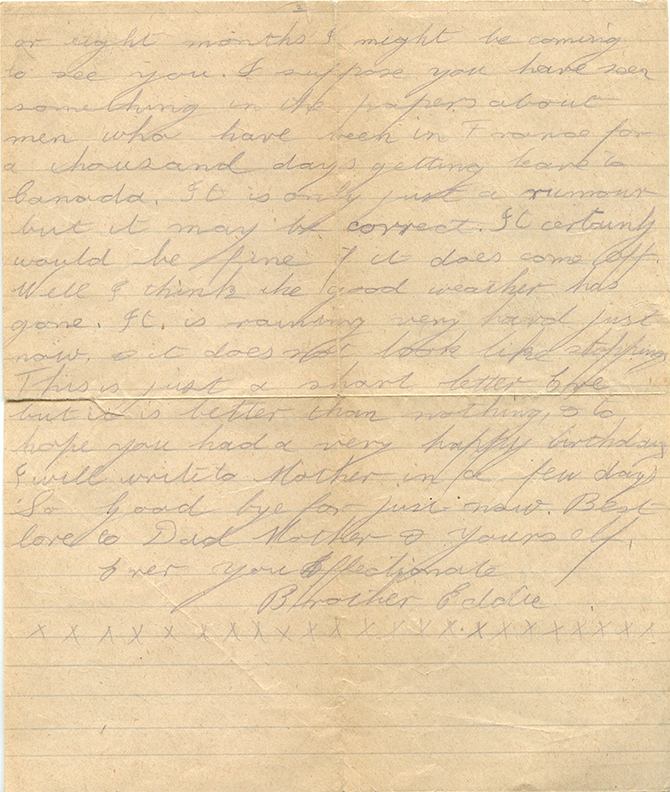 2
or eight months I might be coming
to see you. I suppose you have seen
something in the papers about
men who have been in France for
a thousand days getting leave to
Canada. It is only just a rumour
but it may be correct. It certainly
would be fine if it does come off.
Well I think the good weather has
gone. It is raining very hard just
now, & it does not look like stopping
This is just a short letter Eve
but it is better than nothing, & to
hope you had a very happy birthday
I will write to Mother in a few days
So Good bye for just now. Best
love to Dad Mother & Yourself.
Ever your Affectionate
Brother Eddie
x x x x x x x x x x x x x x x x x x x x x x x